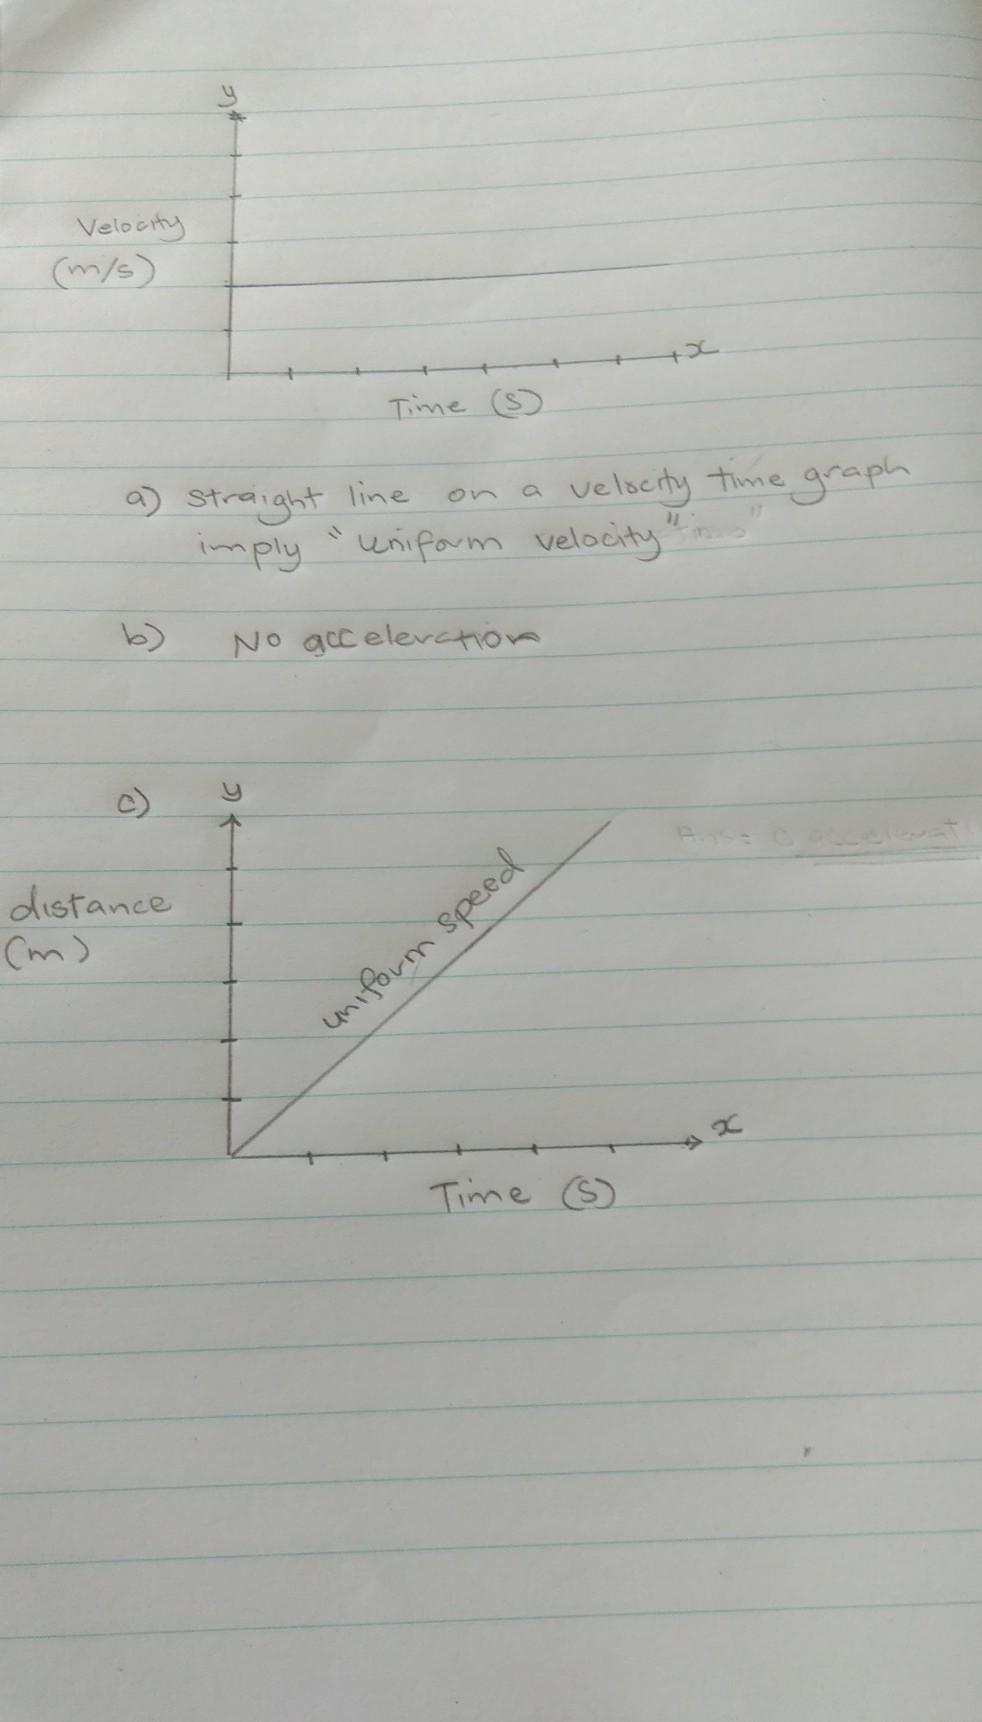 y
Velocity
(m/s)
x
Time (s)
a) straight line on a velocity time graph
imply "uniform velocity"
b) No acceleration
c) y
distance
(m)
uniform speed
x
Time (s)